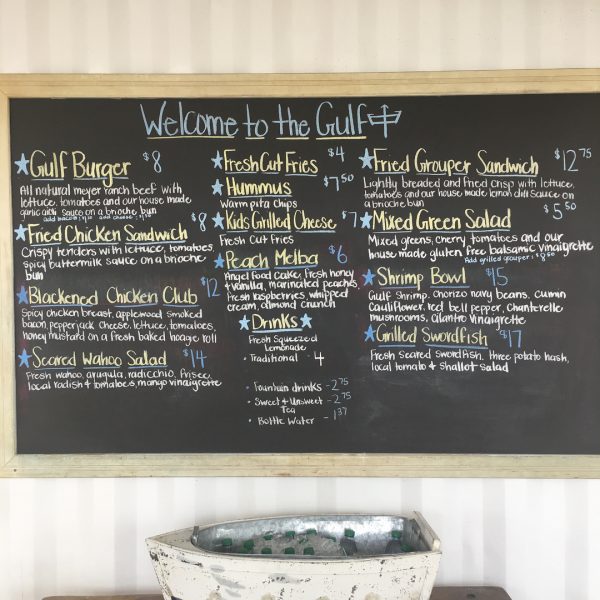 Welcome to the Gulf
Gulf Burger $8
All natural meyer ranch beef with
lettuce, tomatoes and our house made
garlic aioli sauce on a brioche bun
add bacon $1.50 add cheese $1.00
Fried Chicken Sandwich $8
Crispy tenders with lettuce, tomatoes,
spicy buttermilk sauce on a brioche
bun
Blackened Chicken Club $12
Spicy chicken breast, applewood smoked
bacon, pepperjack cheese, lettuce, tomatoes,
honey mustard on a fresh baked hoagie roll
Seared Wahoo Salad $14
Fresh wahoo, arugula, radicchio, frisee,
local radish & tomatoes, mango vinaigrette
Fresh Cut Fries $4
Hummus $7.50
Warm pita chips
Kids Grilled Cheese $7
Fresh Cut Fries
Peach Melba $6
Angel food cake, fresh honey
& vanilla, marinated peaches,
Fresh raspberries, whipped
cream, almond crunch
Drinks
Fresh Squeezed
Lemonade
• Traditional • 4
• Fountain drinks - 2.75
• Sweet & Unsweet - 2.75
Tea
• Bottle Water - 1.37
Fried Grouper Sandwich $12.75
Lightly breaded and fried crisp with lettuce,
tomatoes and our house made lemon chili sauce on
a brioche bun
Mixed Green Salad $5.50
Mixed greens, cherry tomatoes and our
house made gluten free balsamic vinaigrette
Add grilled grouper • $8.50
Shrimp Bowl $15
Gulf Shrimp, Chorizo navy beans, cumin
cauliflower, red bell pepper, chanterelle
mushrooms, cilantro vinaigrette
Grilled Swordfish $17
Fresh Seared Swordfish, three potato hash,
local tomato & shallot salad